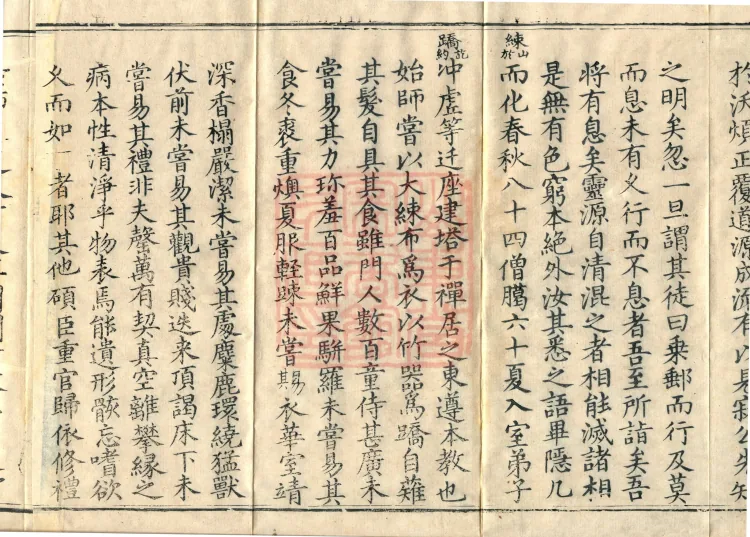 扵沃煩正覆道源成流有以見寂公先知
之明矣忽一旦謂其徒曰乗郵而行及莫
而息未有久行而不息者吾至所詣矣吾
將有息矣靈源自清混之者相能滅諸相
是無有色窮本絕外汝其悉之語畢隱几
練山於
而化春秋八十四僧臈六十夏入室弟子
蹻訖約
冲虛等迁座建塔于禪居之東遵本教也
始師嘗以大練布爲衣以竹器爲蹻自薙
其髮自具其食雖門人數百童侍甚廣未
嘗易其力珎羞百品鮮果駢羅未嘗易其
食冬裘重燠夏服輕踈未嘗易衣華室靖
深香榻嚴潔未嘗易其處麋鹿環繞猛獸
伏前未嘗易其觀貴賤迭来頂謁床下未
嘗易其禮非夫罄萬有契真空離攀縁之
病本性清淨乎物表焉能遺形骸忘嗜欲
久而如一者耶其他碩臣重官歸依修禮